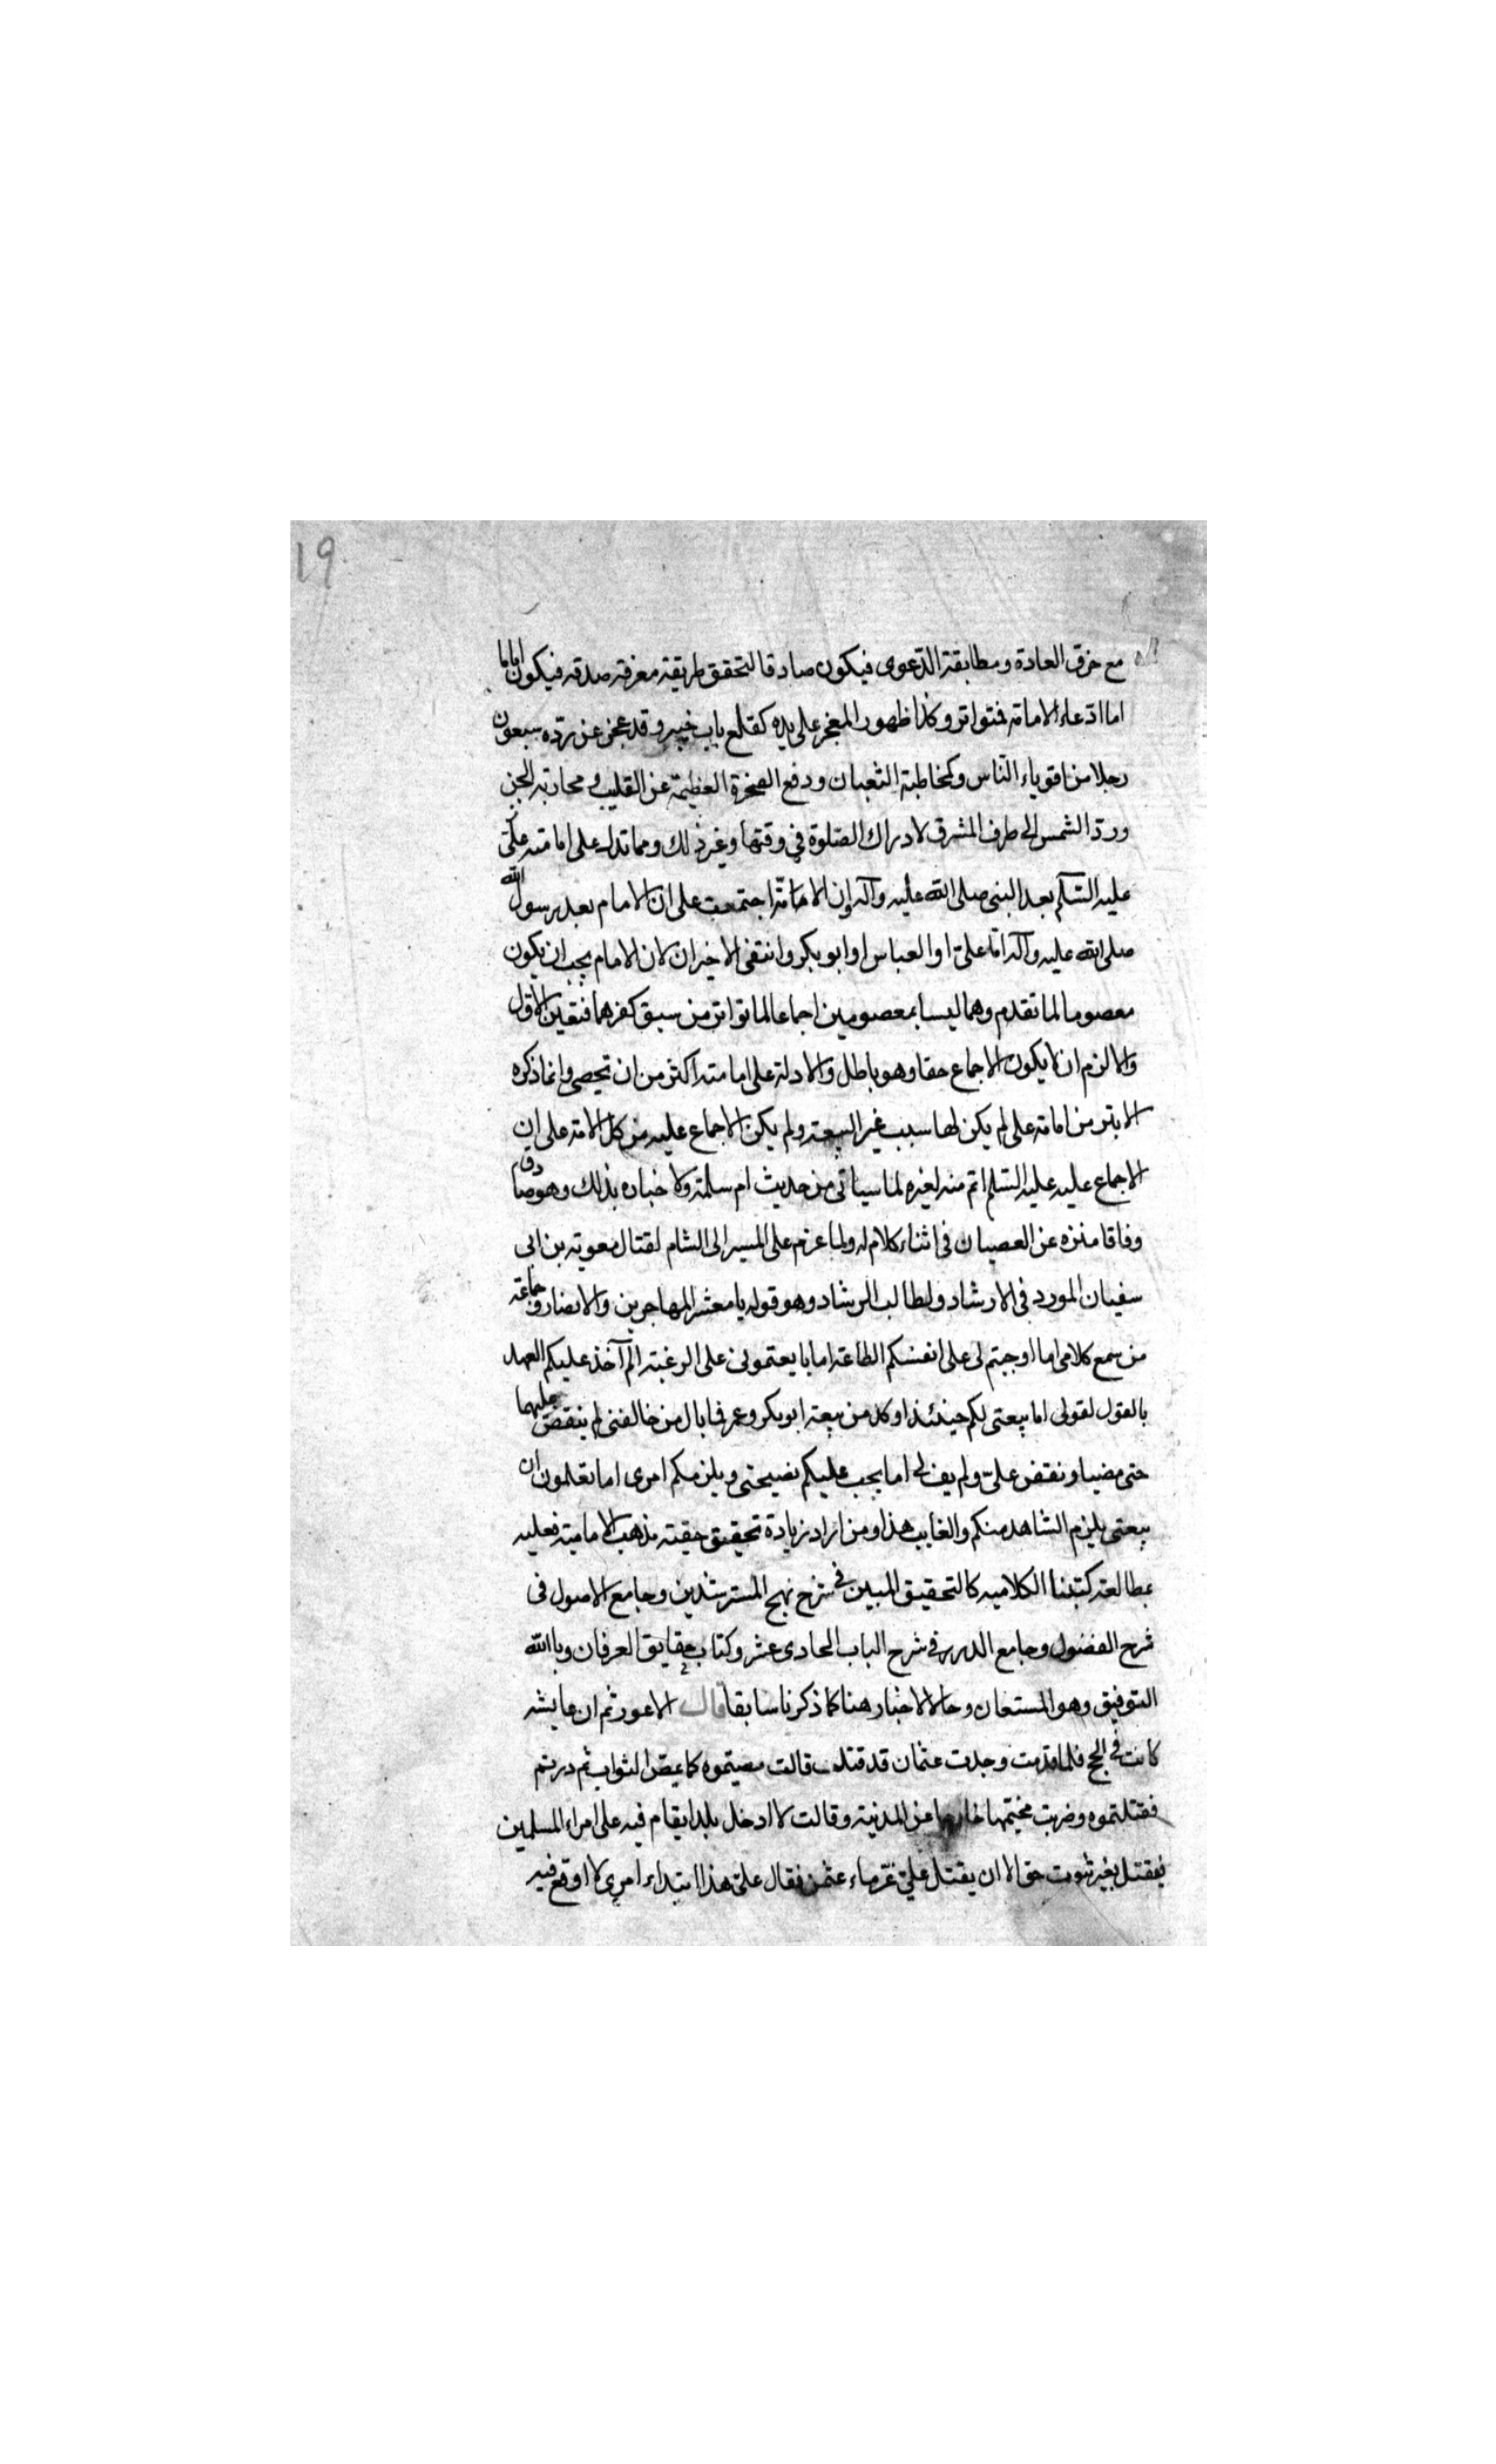 19
مع خرق العادة ومطابقة الدعوى فيكون صادقا لتحقق طريقة معرفة صدقه فيكون اماما
اما ادعاء الامامة فتواتر وكذا ظهور المعجز على يده كقلع باب خيبر وقد عجز عن رده سبعون
رجلا من اقوياء الناس وكمخاطبة الثعبان ودفع الصخرة العظيمة عن القليب ومحاربة الجن
ورد الشمس الى طرف المشرق لادراك الصلوة في وقتها وغير ذلك ومما تدل على امامته على
عليه السلم بعد النبى صلى الله عليه وآله ان الامامة اجتمعت على ان الامام بعد رسول الله
صلى الله عليه وآله اما علىّ او العباس او ابو بكر وانتفى الاخيران لان الامام يجب ان يكون
معصوما لما تقدم وهما ليسا بمعصومين اجماعا لما تواتر من سبق كفرهما فتعين الاول
والا لزم ان لا يكون الاجماع حقا وهو باطل والادلة على امامته اكثر من ان تحصى وانما ذكره
الابتر من امامة على لم يكن لها سبب غير البيعة ولم يكن الاجماع عليه من كل الامة على ان
الاجماع عليه عليه السلم اتم منه لغيره لما سياتى من حديث ام سلمة ولاخباره بذلك وهو صادق
وفاقا منزه عن العصيان فى اثناء كلام له ولما عزم على المسير الى الشام لقتال معوية بن ابى
سفيان المورد فى الارشاد ولطالب الرشاد وهو قوله يا معشر المهاجرين والانصار وجماعة
من سمع كلامى اما اوجبتم لى على انفسكم الطاعة اما بايعتمونى على الرغبة الم آخذ عليكم العهد
بالقول لقولى اما بيعتى لكم حينئذ اوكد من بيعة ابو بكر وعمر فما بال من خالفنى لم ينقض عليهما
حتى مضيا ونقض علىّ ولم يف لى اما يجب عليكم نصيحتى ويلزمكم امرى اما تعلمون ان
بيعتى يلزم الشاهد منكم والغايب هذا ومن اراد زيادة تحقيق حقية مذهب الامامية فعليه
بمطالعة كتبنا الكلاميه كالتحقيق المبين فى شرح نهج المسترشدين وجامع الاصول فى
شرح الفصول وجامع الدرر فى شرح الباب الحادى عشر وكتاب حقايق العرفان وبالله
التوفيق وهو المستعان وحال الاخبار هنا كما ذكرنا سابقا قال الاعور ثم ان عايشه
كانت فى الحج فلما قدمت وجدت عثمان قد قتل قالت مصيتموه كما يمص الثواب ثم درتم
فقتلتموه وضربت مخيمها خارجا عن المدنية وقالت لا ادخل بلدا يقام فيه على امراء المسلمين
فيقتل بغير ثبوت حق الا ان يقتل علىّ غرماء عثمن فقال علىّ هذا ابتداء امرى لا اوقع فيه